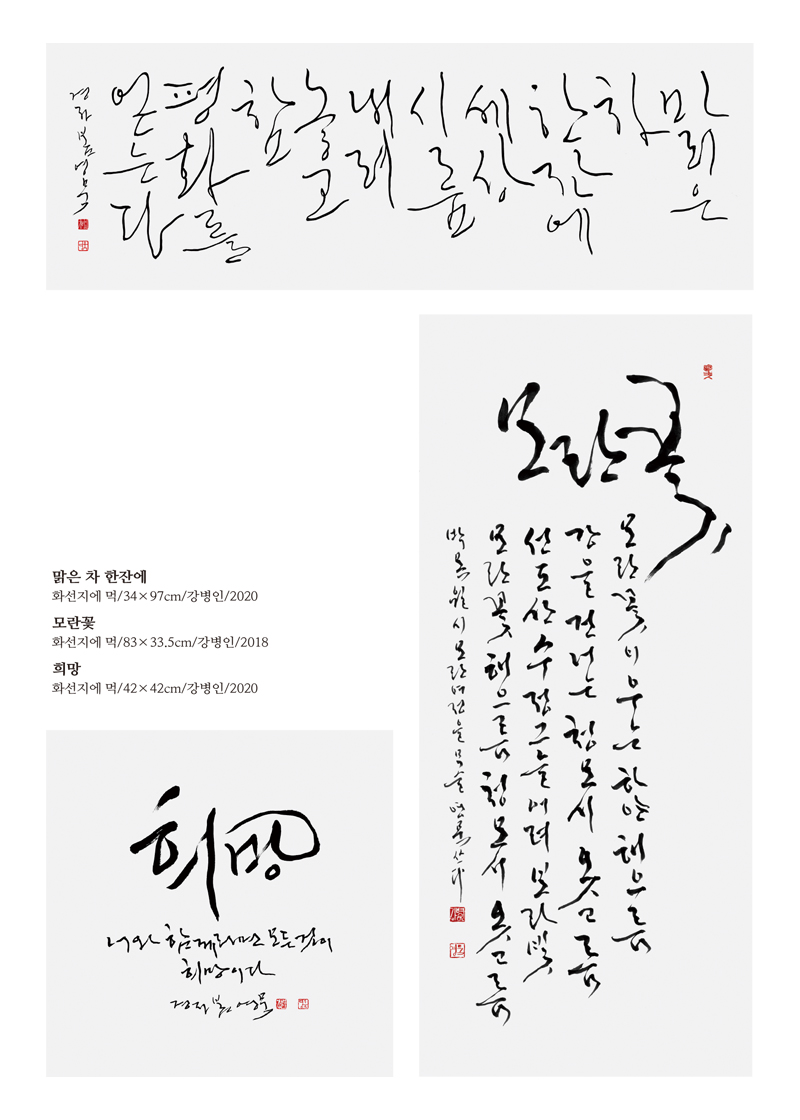 맑은
차
한잔에
세상
시름
내려
놓고
참
평화를
얻는다
경자 봄 영묵
모란꽃
모란꽃 이우는 하얀 해으름
강을 건너는 청모시 옷고름
선도산 수정그늘 어려 보랏빛
모란꽃 해으름 청모시 옷고름
박목월 시 모란여정을 무술
맑은 차 한잔에
화선지에 먹/34×97cm/강병인/2020
모란꽃
화선지에 먹/83×33.5cm/강병인/2018
희망
화선지에 먹/42×42cm/강병인/2020
희망
너와 모든 것이
희망이다
경자 봄 영묵